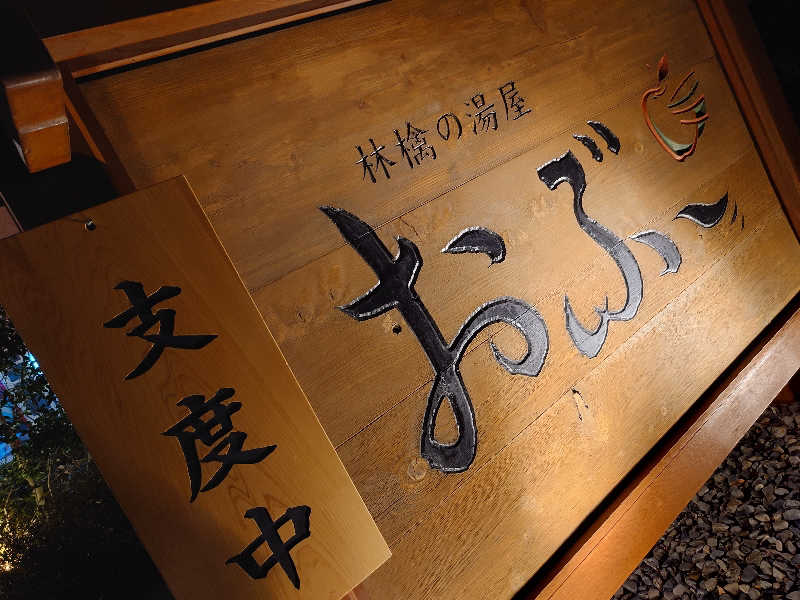 林檎の湯屋
おぶ～
支度中